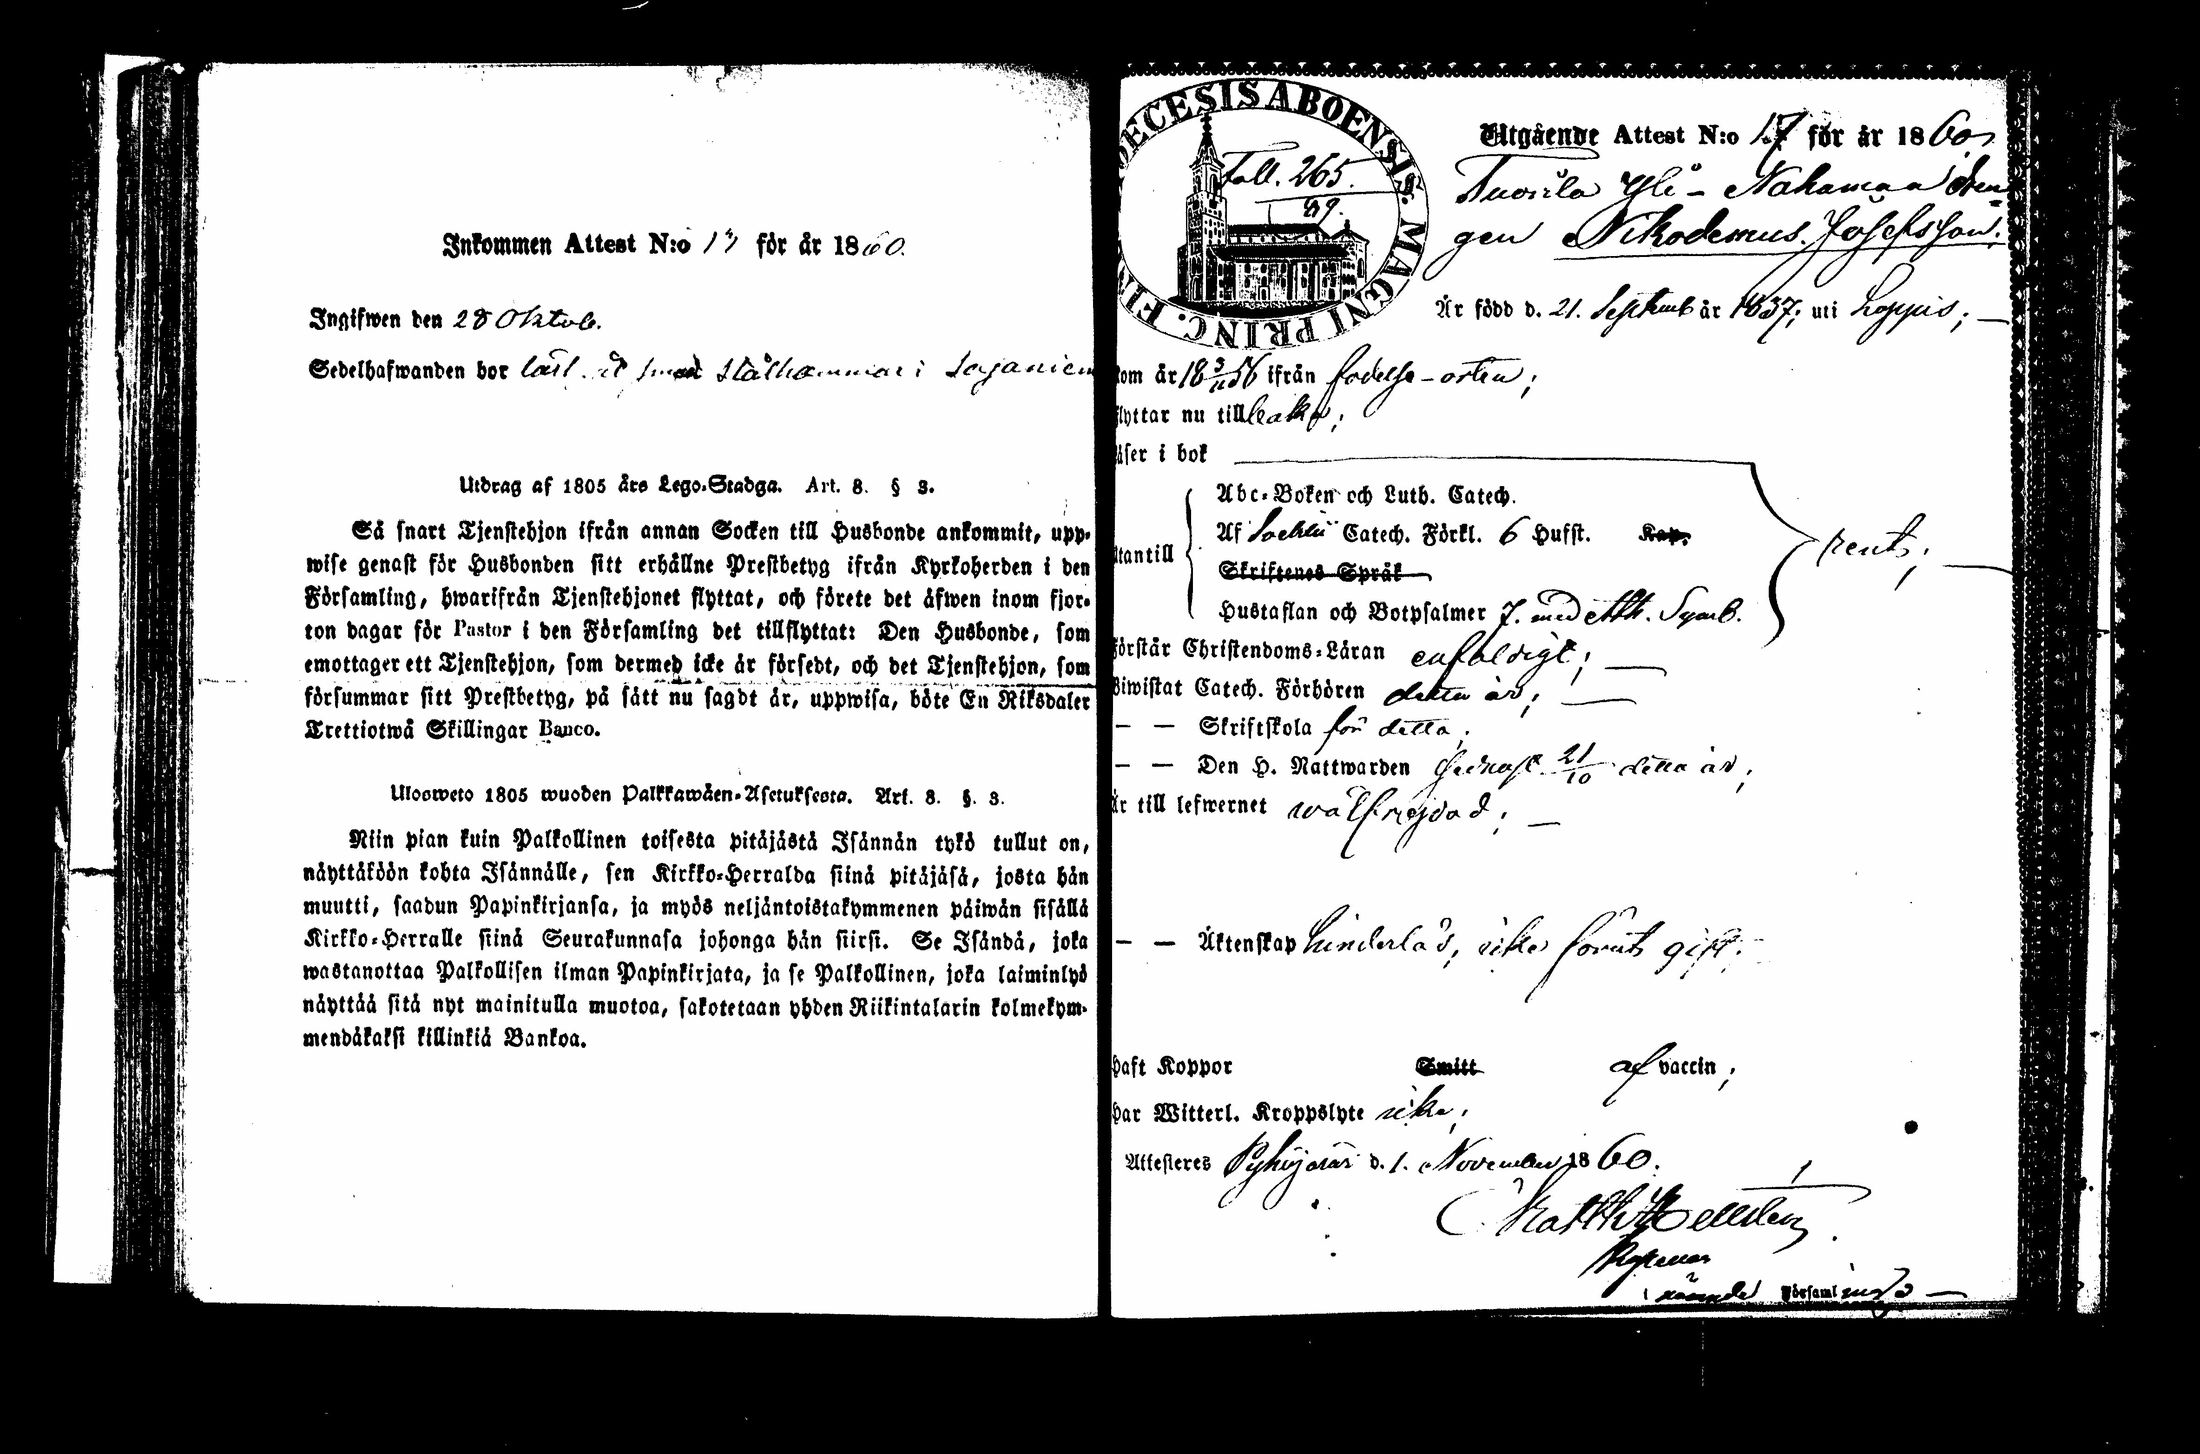 Inkommen Attest N:o 17 för år 1860.
Ingifwen den 28 Oktob.
Sedelhafwanden bor
Utdrag af 1805 års Lego-Stadga. Art. 8. § 3.
Så snart Tjenstehjon ifrån annan Socken till Husbonde ankommit, upp-
wise genast för Husbonden sitt erhållne Prestbetyg ifrån Kyrkoherden i den
Församling, hwarifrån Tjenstehjonet flyttat, och förete det äfwen inom fjor-
ton dagar för Pastor i den Församling det tillflyttat: Den Husbonde, som
emottager ett Tjenstehjon, som dermed icke är försedt, och det Tjenstehjon, som
försummar sitt Prestbetyg, på sätt nu sagdt är, uppwisa, böte En Riksdaler
Trettiotwå Skillingar Banco.
Ulosweto 1805 wuoden Palkkawäen-Asetuksesta. Art. 8. §. 3.
Niin pian kuin Palkollinen toisesta pitäjästä Isännän tykö tullut on,
näyttäköön kohta Isännälle, sen Kirkko-Herralda siinä pitäjäsä, josta hän
muutti, saadun Papinkirjansa, ja myös neljäntoistakymmenen päiwän sisällä
Kirkko-Herralle siinä Seurakunnasa johonga hän siirsi. Se Isändä, joka
wastanottaa Palkollisen ilman Papinkirjata, ja se Palkollinen, joka laiminlyö
näyttää sitä nyt mainitulla muotoa, sakotetaan yhden Riikintalarin kolmekym-
mendäkaksi killinkiä Bankoa.
ECESIS ABOENSIS. MAGNI PRINC. FI
Foll. 265.
Utgående Attest N:o 17 för år 1860
Yli-Nahamaa Dren-
gen Nikodemus. Josefsson.
Är född d. 21. Septemb år 1837; uti Loppis;
kom år 18 3/11 56 ifrån födelse-orten;
flyttar nu till
läser i bok
Abc-Boken och Luth. Catech.
Af Catech. Förkl. 6 Hufst. Kap.
utantill
Skriftenes Språk
Hustaflan och Botpsalmer 7. med Ath. Symb.
rent;
förstår Christendoms-Läran enfaldigt;
Biwistat Catech. Förhören detta år;
— — Skriftskola för detta;
— — Den H. Nattwarden senast 21/10 detta år;
är till lefwernet wälfrejdad;
— — Äktenskap hinderlös, icke förut gift;
haft Koppor Smitt af vaccin;
har Witterl. Kroppslyte icke;
Attesteres Pyhäjärvi d. 1. November 1860.
Matth Hellsten
i Församling